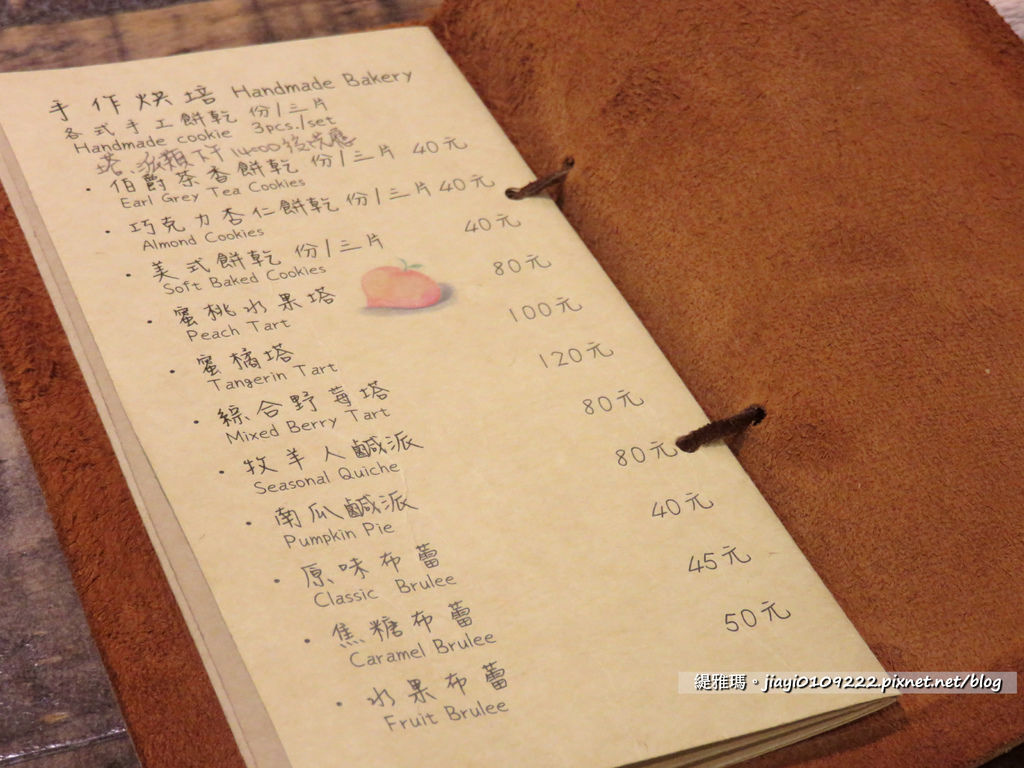 手作烘培 Handmade Bakery
各式手工餅乾 份/三片
Handmade cookie 3pcs./set
塔.派類下午14:00後供應
· 伯爵茶香餅乾 份/三片 40元
Earl Grey Tea Cookies
· 巧克力杏仁餅乾 份/三片 40元
Almond Cookies
· 美式餅乾 份/三片 40元
Soft Baked Cookies
· 蜜桃水果塔 80元
Peach Tart
· 蜜橘塔 100元
Tangerin Tart
· 綜合野莓塔 120元
Mixed Berry Tart
· 牧羊人鹹派 80元
Seasonal Quiche
· 南瓜鹹派 80元
Pumpkin Pie
· 原味布蕾 40元
Classic Brulee
· 焦糖布蕾 45元
Caramel Brulee
· 水果布蕾 50元
Fruit Brulee
緹雅瑪。jiayi0109222.pixnet.net/blog